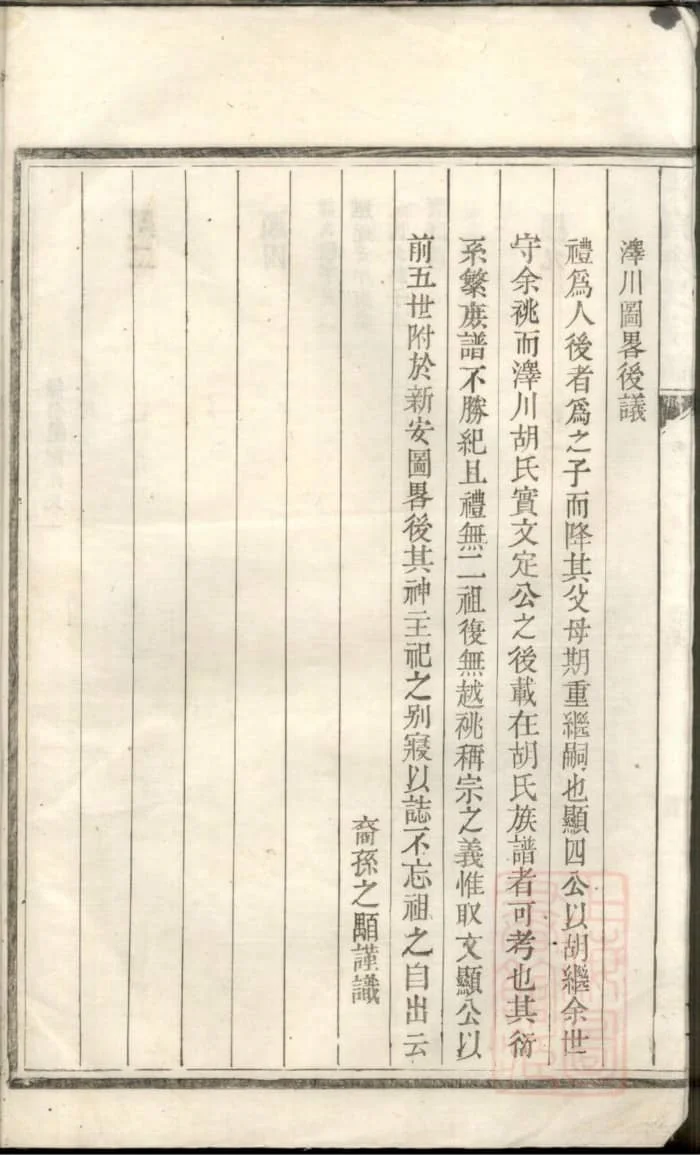 澤川圖畧後議
禮爲人後者爲之子而降其父母期重繼嗣也顯四公以胡繼余世
守余祧而澤川胡氏實文定公之後載在胡氏族譜者可考也其衍
系繁族譜不勝紀且禮無二祖復無越祧稱宗之義惟取文顯公以
前五世附於新安圖畧後其神主祀之别寢以誌不忘祖之自出云
裔孫之顒謹識